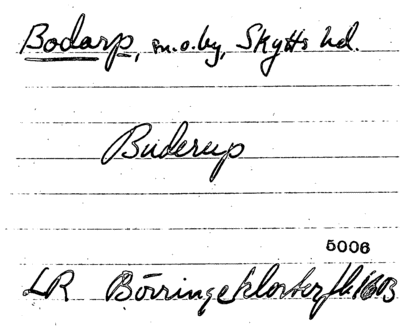 Bodarp, sn. o. by, Skytts hd.
Buderup
5006
LR Börringekloster